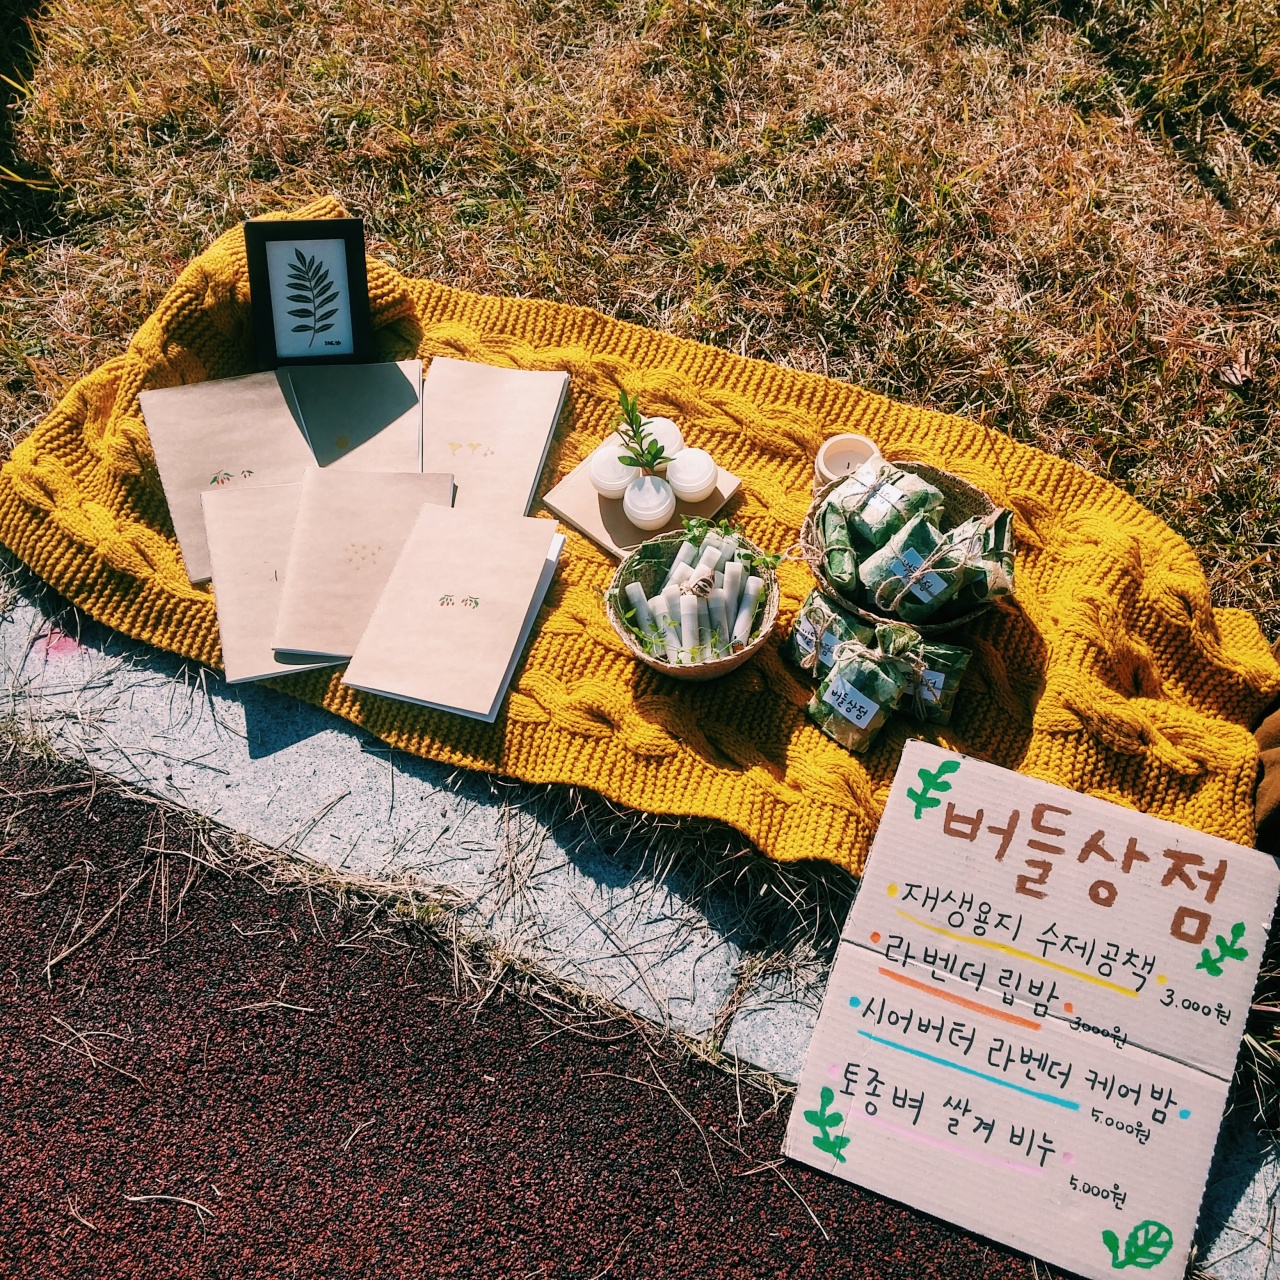 버들상점
버들상점
재생용지 수제공책
3.000원
라벤더 립밤
3000원
시어버터 라벤더 케어밤
5.000원
토종벼 쌀겨 비누
5.000원